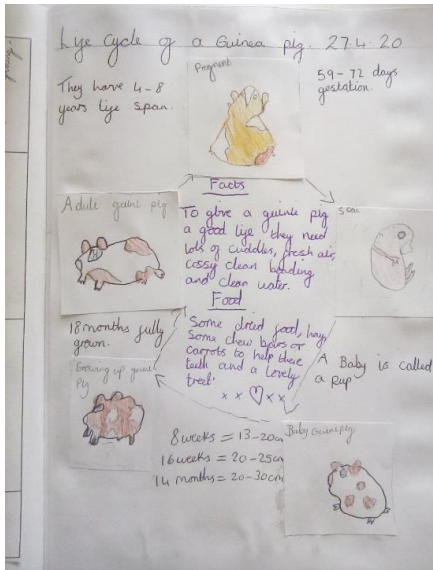 Life Cycle of a Guinea pig. 27.4.20
They have 4-8
years life span.
Pregnant
59-72 days
gestation.
Adult guine pig
Facts
To give a guinie pig
a good life they need
lots of cuddles, fresh air,
cossy clean bending
and clean water.
Food
Some dried food, hay,
Some chew bars or
carrots to help there
teeth and a lovely
treet.
x x ♡ x x
18 months fully
grown.
Growing up
Pig
A Baby is called
a pup
8 weeks = 13-20cm
16 weeks = 20-25cm
14 months = 20-30cm
Baby Guinea pig